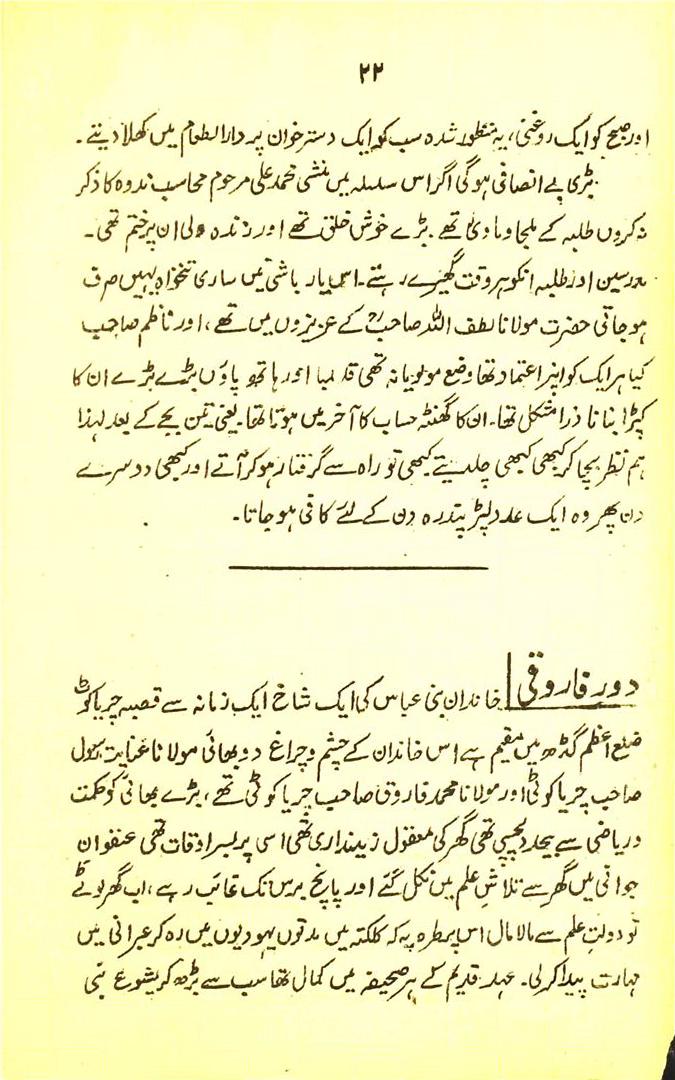 ۲۲
اور صبح کو ایک روغنی، یہ منظور شدہ سب کو ایک دسترخوان پر دارالطعام میں کھلا دیتے۔
بڑی بے انصافی ہوگی اگر اس سلسلہ میں منشی محمد علی مرحوم محاسب ندوہ کا ذکر
نہ کروں طلبہ کے ملجا و ماویٰ تھے۔ بڑے خوش خلق تھے اور زندہ دلی ان پر ختم تھی۔
مدرسین اور طلبہ انکو ہر وقت گھیرے رہتے۔ اس یار باشی میں ساری تنخواہ یہیں صرف
ہو جاتی حضرت مولانا لطف اللہ صاحبؒ کے عزیزوں میں تھے، اور ناظم صاحب
کیا ہر ایک کو انپر اعتماد تھا وضع مولویانہ تھی قد لمبا اور ہاتھ پاؤں بڑے بڑے ان کا
کپڑا بنانا ذرا مشکل تھا۔ ان کا گھنٹہ حساب کا آخر میں ہوتا تھا۔ یعنی تین بجے کے بعد لہذا
ہم نظر بچا کر کبھی کبھی چلدیتے کبھی تو راہ سے گرفتار ہو کر آتے اور کبھی دوسرے
دن پھر وہ ایک عدد لپڑ پندرہ دن کے لئے کافی ہو جاتا۔
دور فاروقی خاندان بنی عباس کی ایک شاخ ایک زمانہ سے قصبہ چریاکوٹ
ضلع اعظم گڈھ میں مقیم ہے اس خاندان کے چشم و چراغ دو بھائی مولانا عنایت رسول
صاحب چریا کوٹی اور مولانا محمد فاروق صاحب چریا کوٹی تھے، بڑے بھائی کو حکمت
و ریاضی سے بیحد دلچسپی تھی گھر کی معقول زمینداری تھی اسی پر بسر اوقات تھی عنفوان
جوانی میں گھر سے تلاش علم میں نکل گئے اور پانچ برس تک غائب رہے، اب گھر لوٹے
تو دولت علم سے مالا مال اس پر طرہ یہ کہ کلکتہ میں مدتوں یہودیوں میں رہ کر عبرانی میں
مہارت پیدا کر لی۔ عہد قدیم کے ہر صحیفہ میں کمال تھا سب سے بڑھ کر یشوع نبی